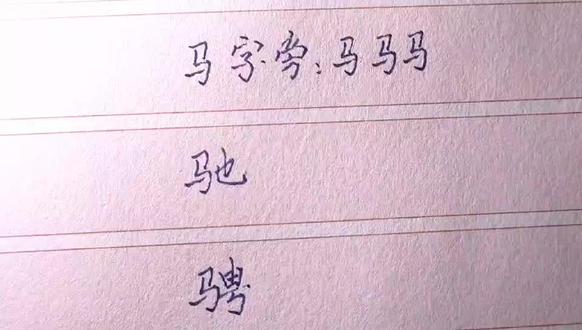 马字旁:马马马
驰
骋